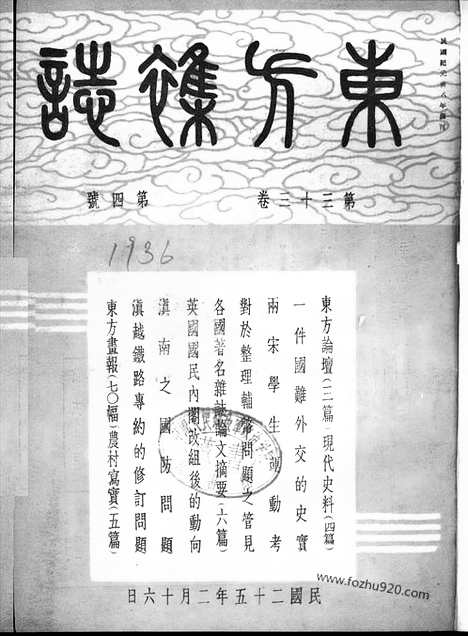 民國紀元前八年創刊
東方雜誌
第三十三卷
第四號
1936
東方論壇(一二篇)現代史料(四篇)
一件國難外交的史實
兩宋學生運動考
對於整理輔幣問題之管見
各國著名雜誌論文摘要(一六篇)
英國國民內閣改組後的動向
滇南之國防問題
滇越鐵路專約的修訂問題
東方畫報(七〇幅)農村寫實(五篇)
民國二十五年二月十六日
www.fozhu920.com